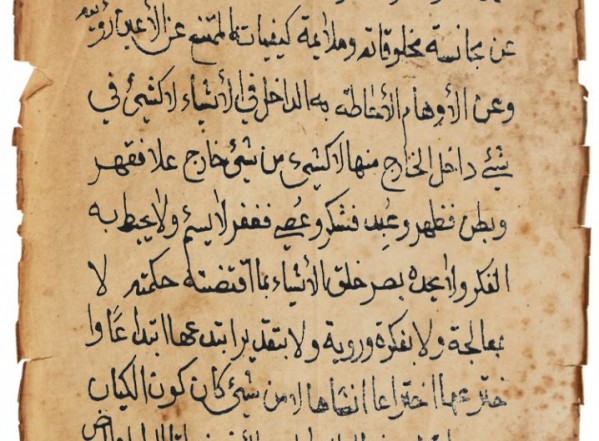 عن مجانسة مخلوقاته وملايمة عن الأعين رؤيته
وعن الأوهام الأحاطة به الداخل في الأشياء لا كشيئ في
شيئ داخل الخارج منها لا كشيئ من شيئ خارج علا فقهر
وبطن فظهر وعبد فشكر وعصي فغفر ولا يحيط به
الفكر ولا يحده بصر خلق الأشياء بما اقتضته حكمته لا
بمعالجة ولا بفكرة وروية ولا بتقدير ابتدعها ابتداعًا وا
خترعها اختراعا انشاها لا من شيئ كان كون الكيان